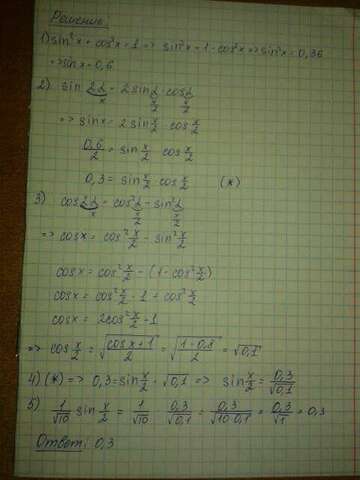 Решение.
1) sin²x + cos²x = 1 => sin²x = 1 - cos²x => sin²x = 0,36
=> sinx = 0,6
2) sin 2α = 2sinα · cosα
x x/2 x/2
=> sinx = 2 sin x/2 · cos x/2
0,6/2 = sin x/2 · cos x/2
0,3 = sin x/2 · cos x/2 (*)
3) cos 2α = cos²α - sin²α
x x/2 x/2
=> cosx = cos² x/2 - sin² x/2
cosx = cos² x/2 - (1 - cos² x/2)
cosx = cos² x/2 - 1 + cos² x/2
cosx = 2cos² x/2 - 1
=> cos x/2 = √((cosx+1)/2) = √((1-0,8)/2) = √0,1
4) (*) => 0,3 = sin x/2 · √0,1 => sin x/2 = 0,3/√0,1
5) 1/√10 sin x/2 = 1/√10 · 0,3/√0,1 = 0,3/√(10·0,1) = 0,3/√1 = 0,3
Ответ: 0,3